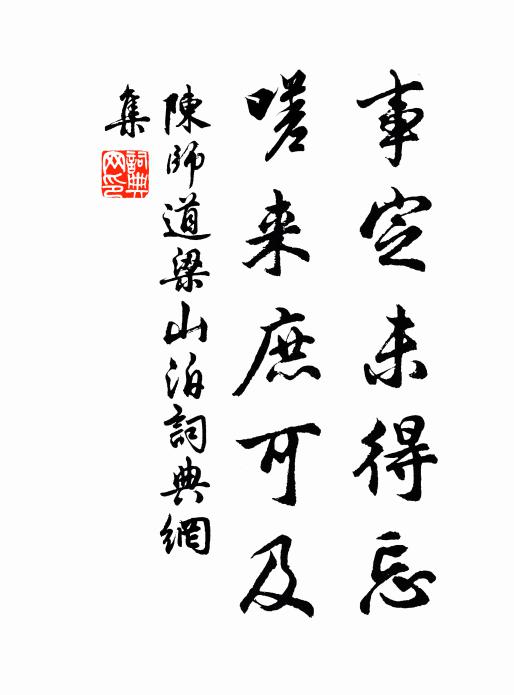 事定未得忘
嗟来庶可及
陳師道梁山泊詞典網
集
詞典
网印